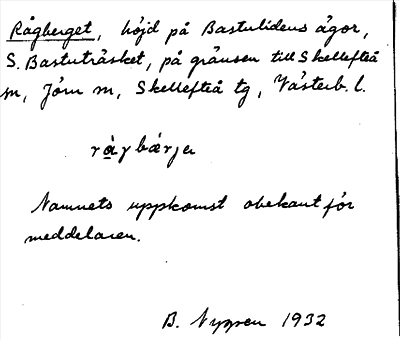 Rågberget, höjd på Bastulidens ägor,
S. Bastuträsket, på gränsen till Skellefteå
m, Jörn m, Skellefteå tg, Västerb. l.
ràγbærjɐ
Namnets uppkomst obekant för
meddelaren.
B. 1932